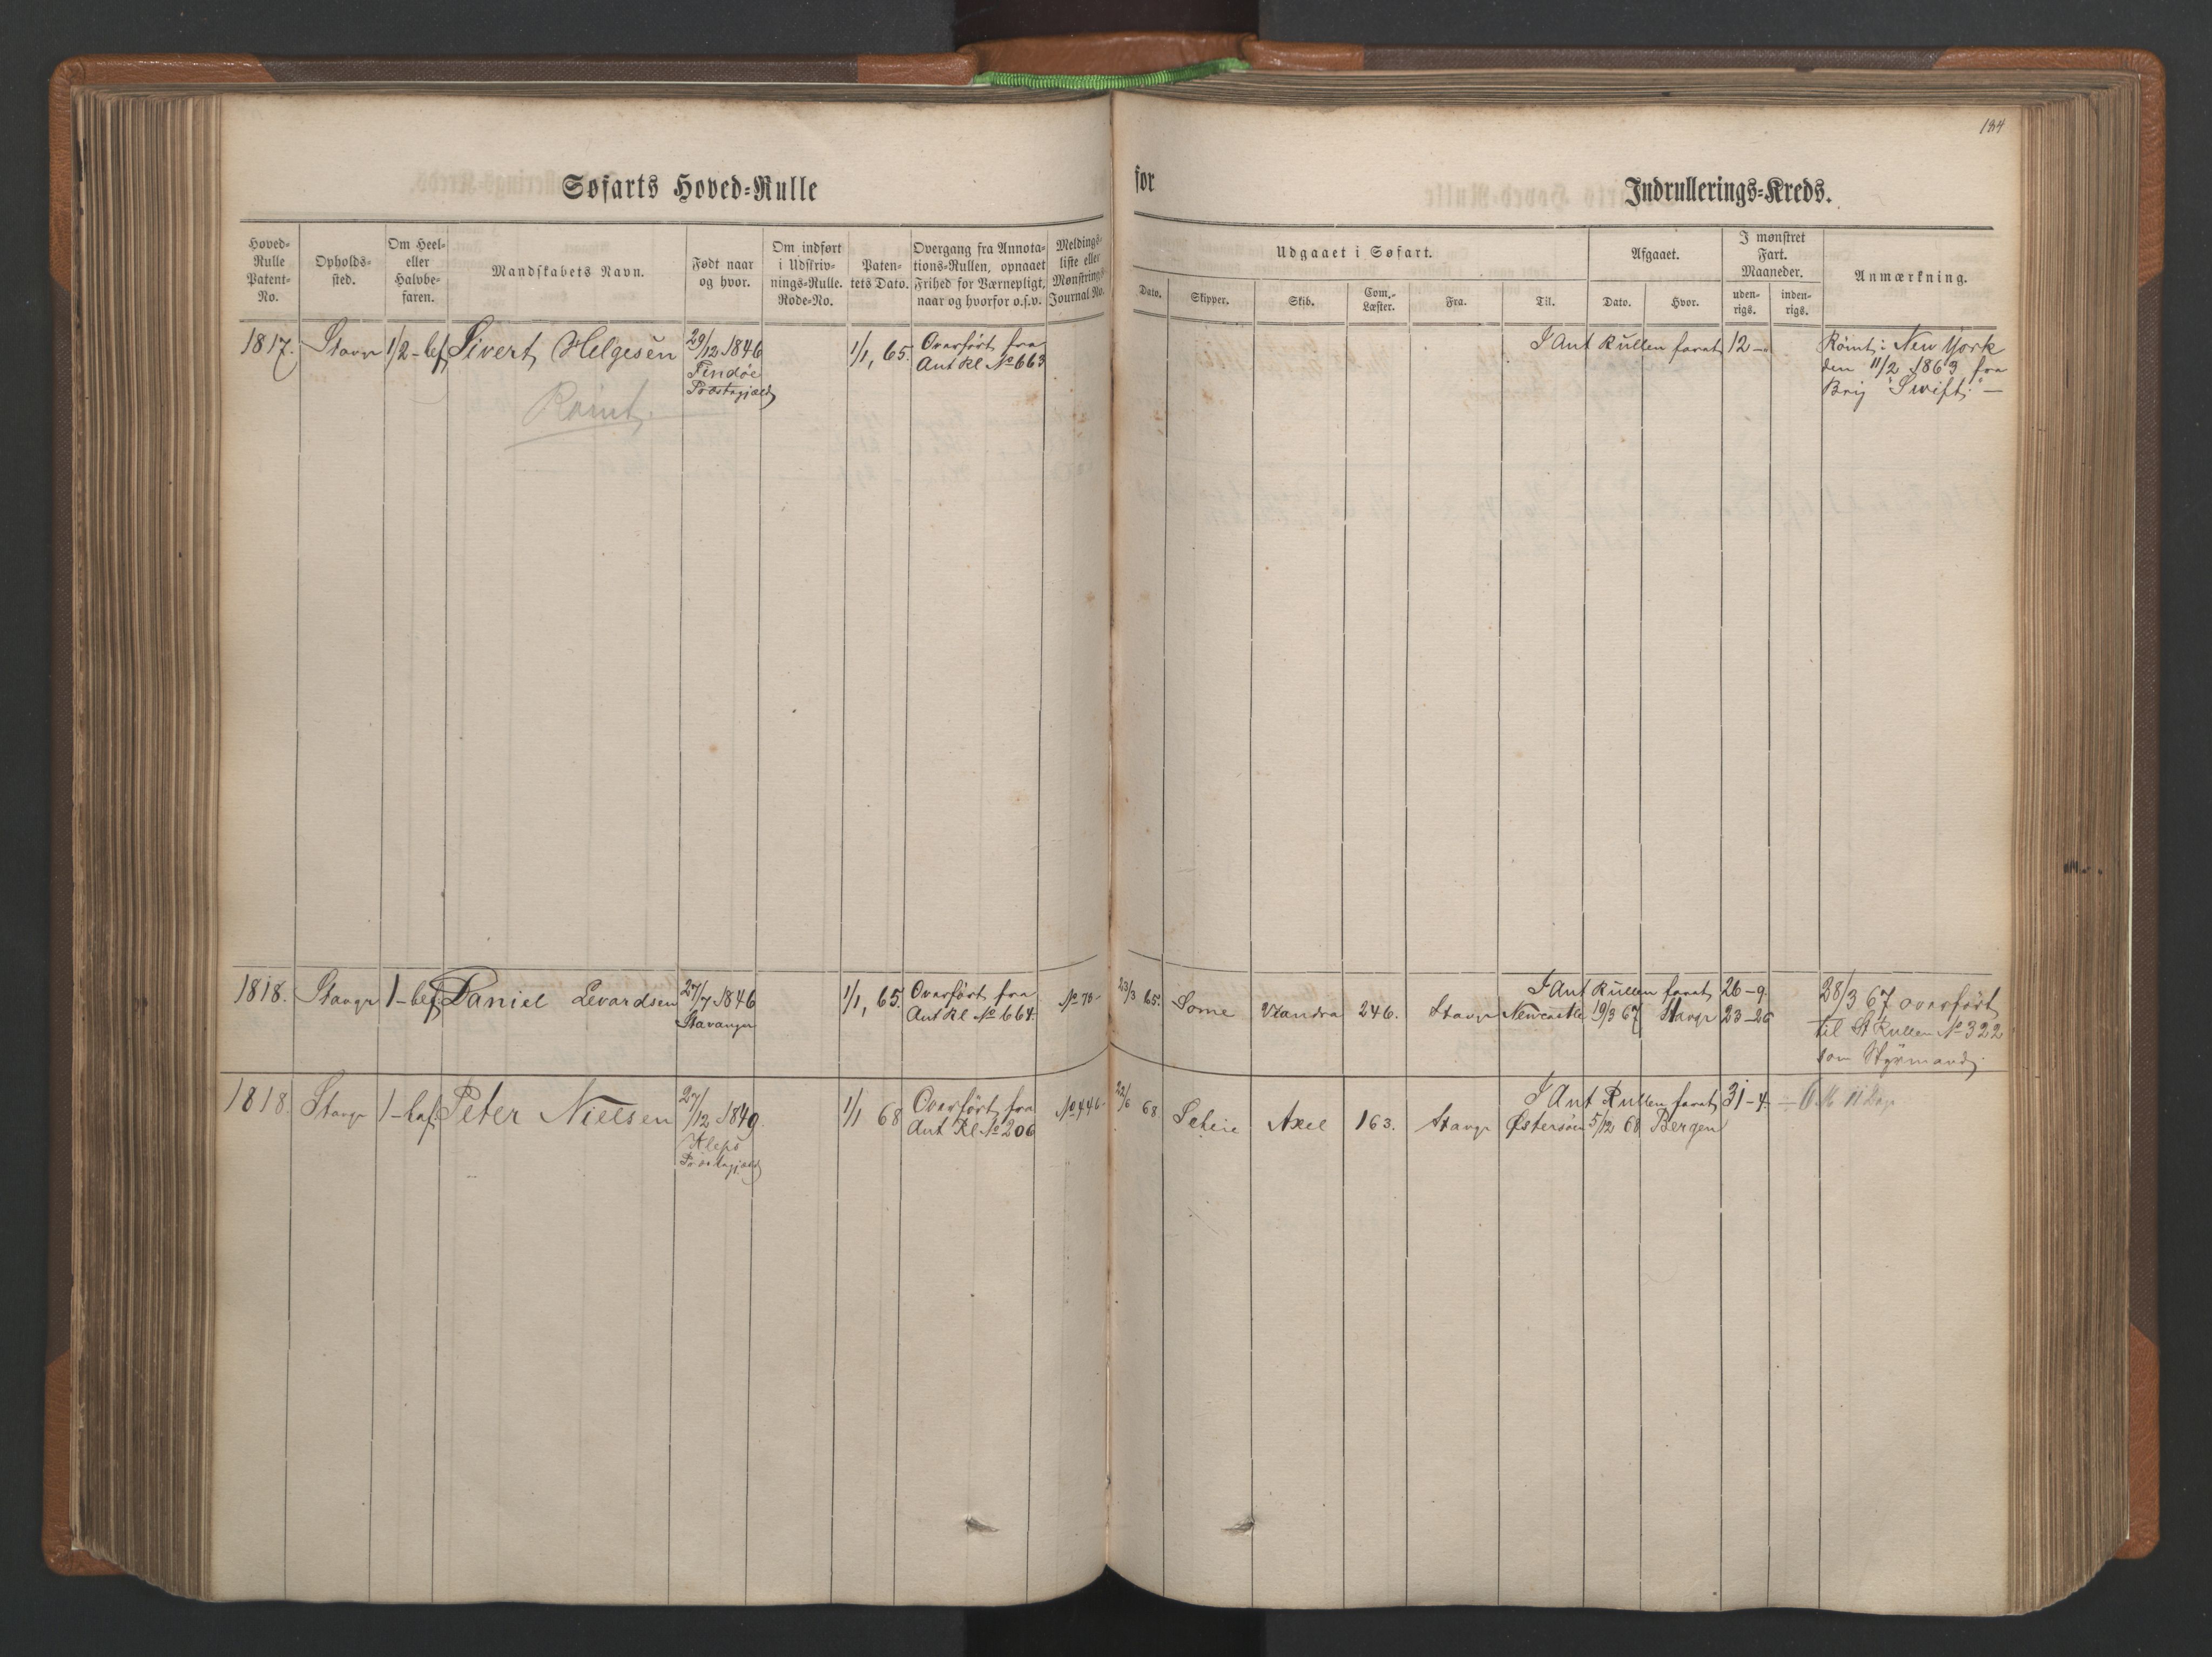 184
Søfarts Hoved-Rulle
for
Indrullerings-Kreds.
Hoved-
Rulle
Patent-
No.
Opholds-
sted.
Om Heel-
eller
Halvbe-
faren.
Mandskabets Navn.
Født naar
og hvor.
Om indført
i Udskriv-
nings-Rulle.
Rode-No.
Paten-
tets Dato.
Overgang fra Annota-
tions-Rullen, opnaaet
Frihed for Værnepligt,
naar og hvorfor o.s.v.
Meldings-
liste eller
Mønstrings
Journal No.
Udgaaet i Søfart.
Dato.
Skipper.
Skib.
Com.-
Læster.
Fra.
Til.
Afgaaet.
Dato.
Hvor.
I mønstret
Fart.
Maaneder.
uden-
rigs.
inden-
rigs.
Anmærkning.
1817. Stavgr 1/2-bef Sivert Helgesen 29/12 1846 1/1, 65. Overført fra
Findøe Ant Rl No 663
Præstegjæld
Rømt.
I Ant Rullen faret 12 - Rømt i New York
den 11/2 1863 fra
Brig "Swift." —
1818. Stavgr 1-bef. Daniel Evardsen 27/7 1846 1/1, 65. Overført fra No 78-
Stavanger Ant Rl No 664.
I Ant Rullen faret 26-9. 28/3 67 overført
23/3 65. Some 246. Stavgr Newcastle 19/3 67 Stavgr 23-26 til St Rullen No 322
som Styrmand.
1818. Stavgr 1-bef. Peter Nielsen 27/12 1849. 1/1 68 Overført fra No 446-
Klep Ant Rl No 206
Præstegjæld
I Ant Rullen faret 31-4. ÷ 6 M 11 Dage
22/6 68 Scheie Axel 163. Stavgr Østersøen 5/12 68 Bergen